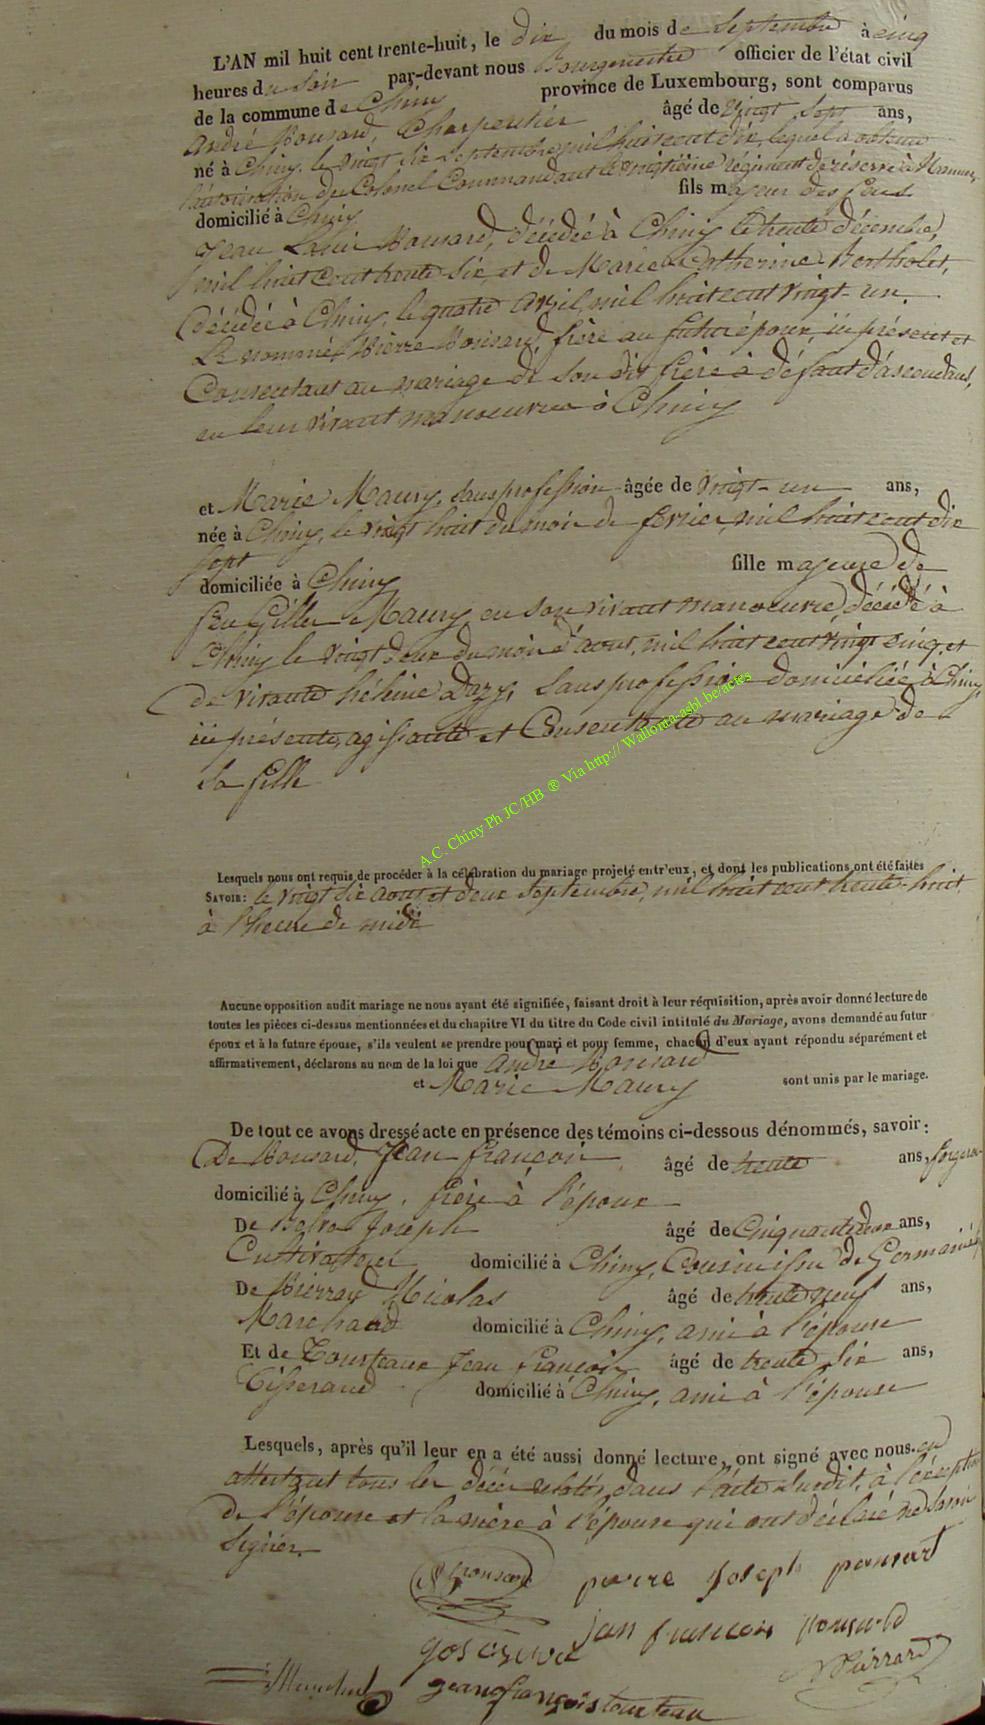 L'AN mil huit cent trente-huit, le dix du mois de Septembre à cinq
heures du soir par-devant nous Bourgmestre officier de l'état civil
de la commune de Chiny province de Luxembourg, sont comparus
André Ponsard, Charpentier âgé de vingt sept ans,
né à Chiny, le vingt six Septembre mil huit cent dix, lequel a obtenu
l'autorisation du Colonel Commandant le vingtième régiment de réserve à Namur,
domicilié à Chiny fils majeur des feus
Jean Louis Ponsard, décédé à Chiny le trente décembre,
mil huit cent trente six, et de Marie Catherine Bertholet,
décédée à Chiny, le quatre avril, mil huit cent vingt-un.
Le nommé Pierre Ponsard, frère au futur époux, ici présent et
Consentant au mariage de son dit frère à défaut d'ascendans,
en leur vivant manoeuvres à Chiny
et Marie Maury, sans profession âgée de vingt-un ans,
née à Chiny, le vingt huit du mois de fevrier, mil huit cent dix
sept
domiciliée à Chiny fille majeure de
feu Gille Maury, en son vivant manoeuvre, décédé à
Chiny le vingt deux du mois d'aout, mil huit cent vingt cinq, et
de vivante hélène Dazy, sans profession domiciliée à Chiny
ici présente, agissante et Consentante au mariage de
sa fille
Lesquels nous ont requis de procéder à la célébration du mariage projeté entr'eux, et dont les publications ont été faites
SAVOIR: le vingt six aout et deux Septembre, mil huit cent trente-huit,
à l'heure de midi
Aucune opposition audit mariage ne nous ayant été signifiée, faisant droit à leur réquisition, après avoir donné lecture de
toutes les pièces ci-dessus mentionnées et du chapitre VI du titre du Code civil intitulé du Mariage, avons demandé au futur
époux et à la future épouse, s'ils veulent se prendre pour mari et pour femme, chacun d'eux ayant répondu séparément et
affirmativement, déclarons au nom de la loi que André Ponsard
et Marie Maury sont unis par le mariage.
De tout ce avons dressé acte en présence des témoins ci-dessous dénommés, savoir:
De Ponsard, Jean françois âgé de trente ans, forgeron
domicilié à Chiny, frère à l'époux
De Joseph âgé de Cinquante deux ans,
Cultivateur domicilié à Chiny, Cousin issu de Germain
De Pierrard Nicolas âgé de trente neuf ans,
Marchand domicilié à Chiny, ami à l'épouse
Et de Tourteaux Jean françois âgé de trente six ans,
Tisserand domicilié à Chiny, ami à l'épouse
Lesquels, après qu'il leur en a été aussi donné lecture, ont signé avec nous. en
attestant tous les décès relatés dans l'acte susdit, à l'exception
de l'épouse et la mère à l'épouse qui ont déclaré ne savoir
signer.
A Ponsard pierre Joseph ponsart
jan francois ponsard
N Pierrard
jean françois tourteau
A.C. Chiny Ph JC/HB ® Via http:// Wallonia-asbl.be/actes